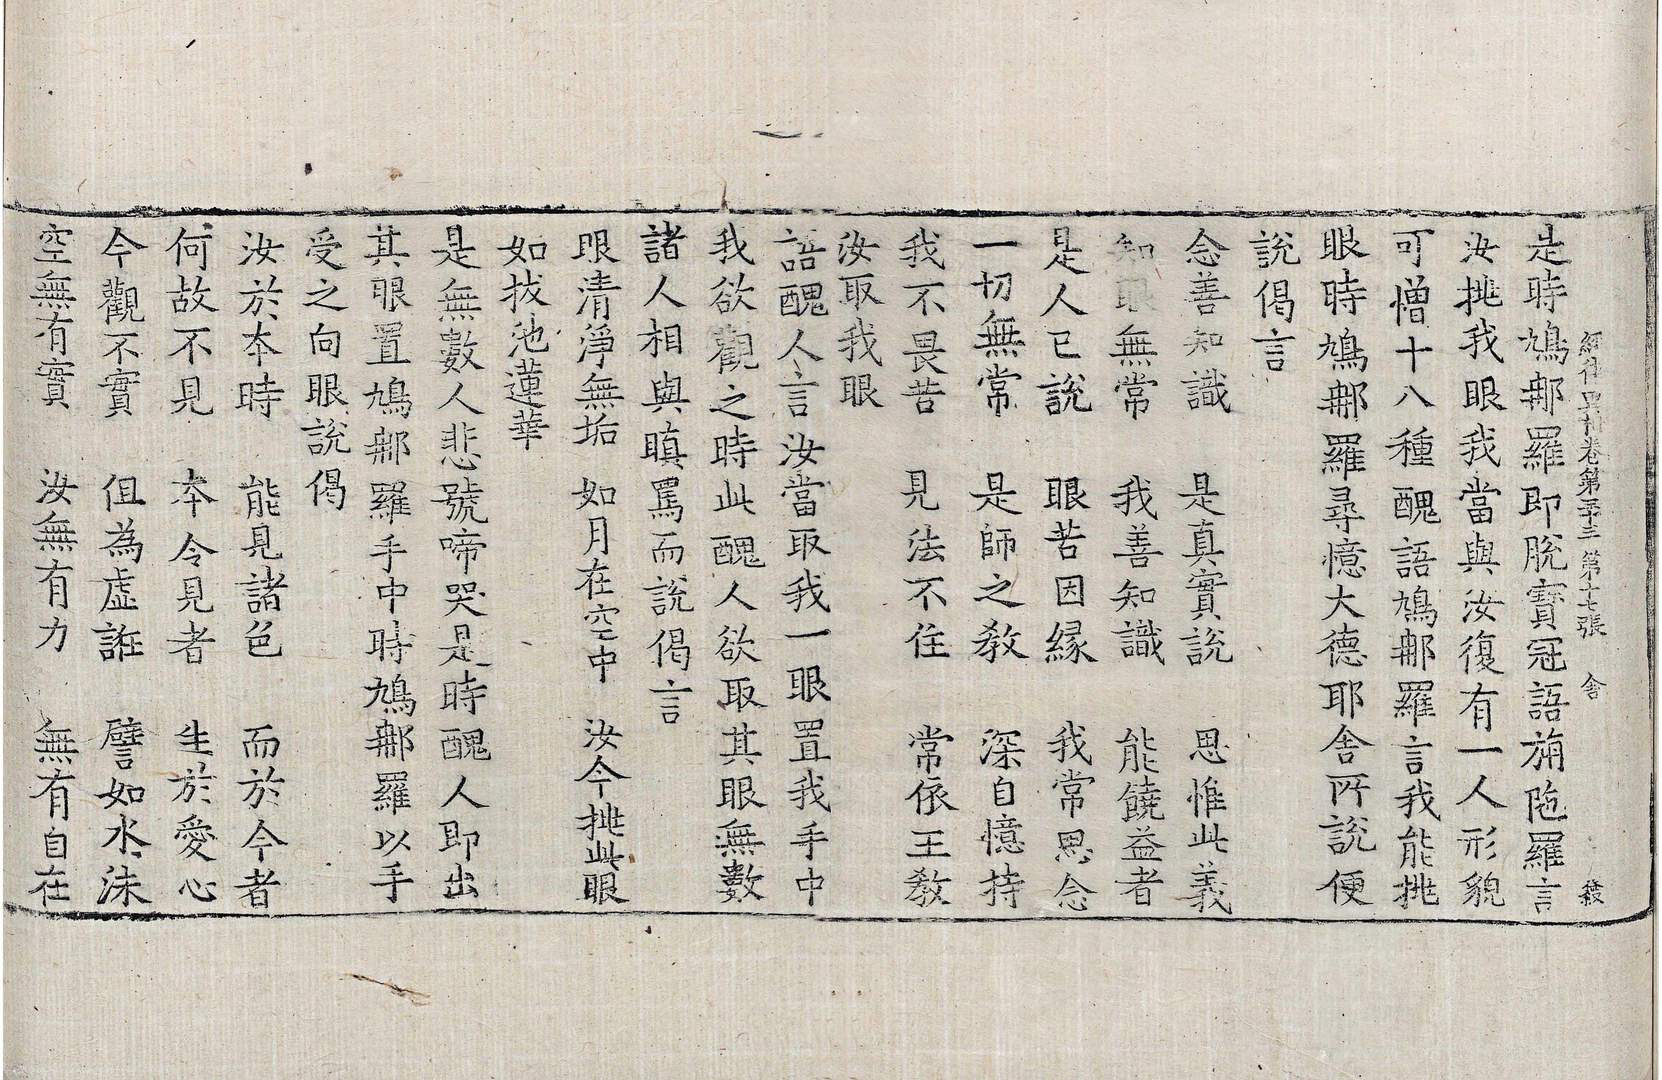 經律異相卷第三十三　第十七張　舍
是時鳩那羅即脫寶冠語旃陁羅言
汝挑我眼我當與汝復有一人形貌
可憎十八種醜語鳩那羅言我能挑
眼時鳩那羅尋憶大德耶舍所說便
說偈言
念善知識　是真實說　思惟此義
知眼無常　我善知識　能饒益者
是人已說　眼苦因緣　我常思念
一切無常　是師之教　深自憶持
我不畏苦　見法不住　常依王教
汝取我眼
語醜人言汝當取我一眼置我手中
我欲觀之時此醜人欲取其眼無數
諸人相與瞋罵而說偈言
眼清淨無垢　如月在空中　汝今挑此眼
如拔池蓮華
是無數人悲號啼哭是時醜人即出
其眼置鳩那羅手中時鳩那羅以手
受之向眼說偈
汝於本時　能見諸色　而於今者
何故不見　本令見者　生於愛心
今觀不實　但為虛誑　譬如水沫
空無有實　汝無有力　無有自在